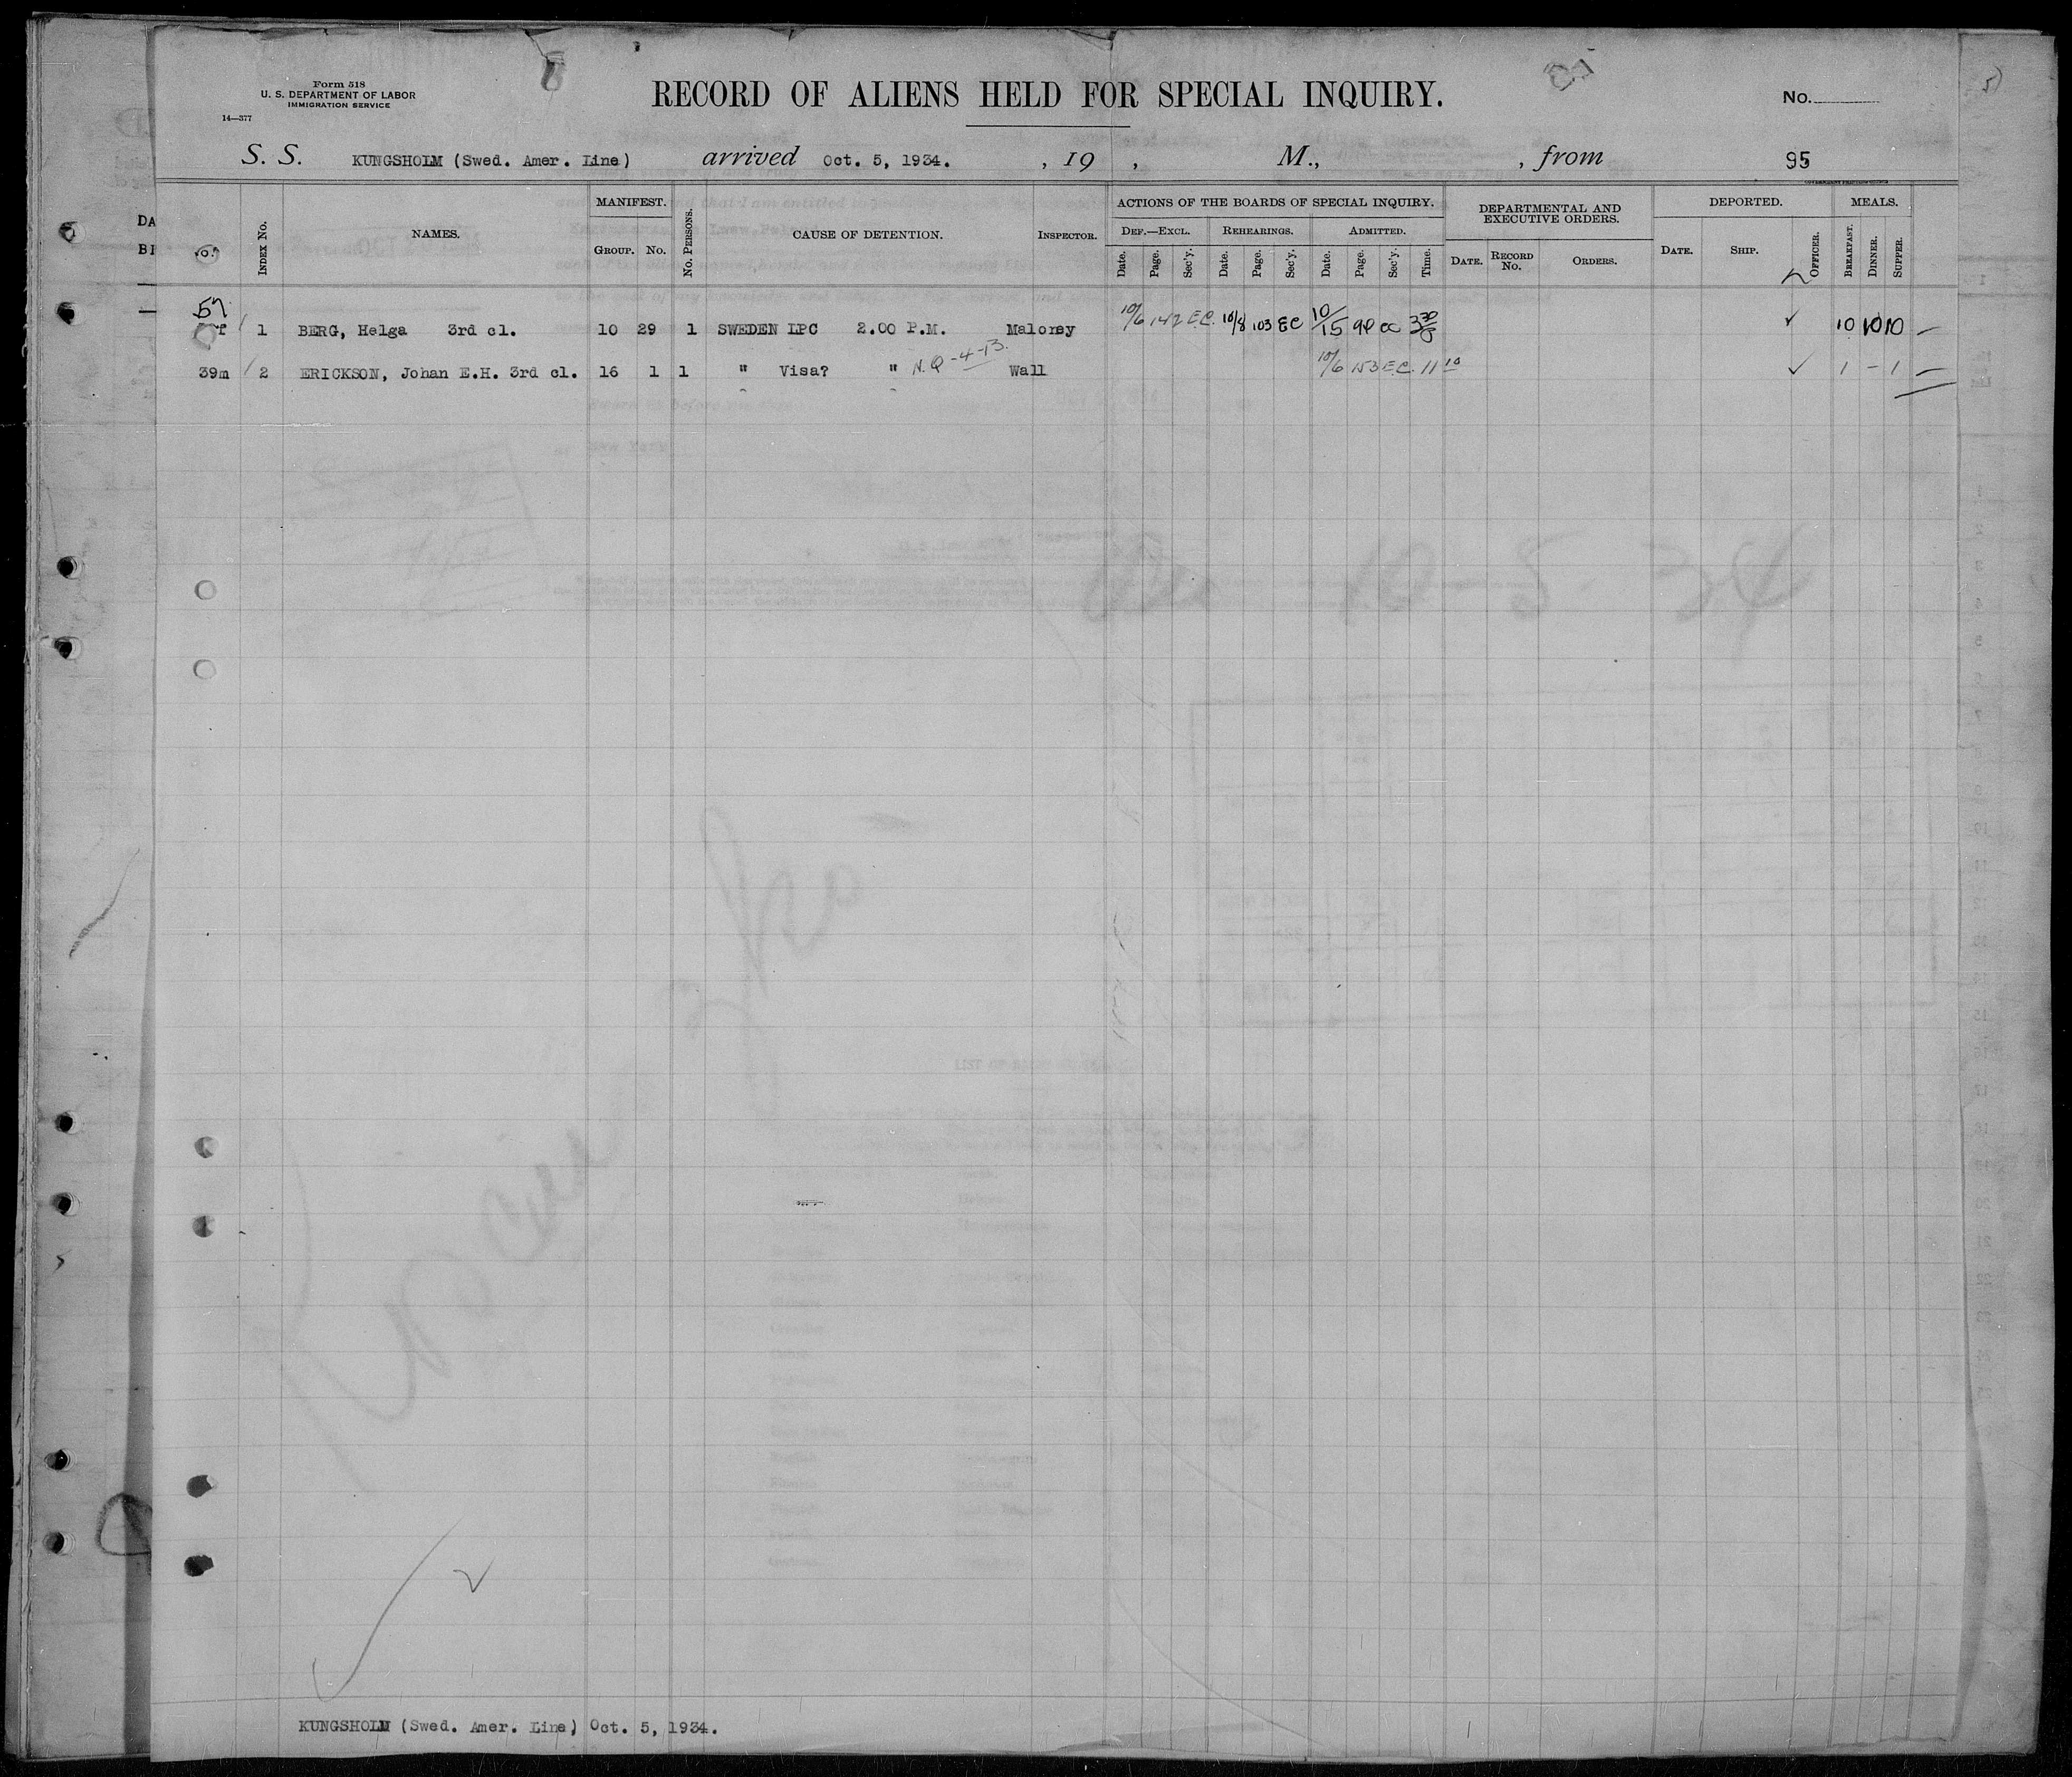 Form 518
U. S. DEPARTMENT OF LABOR
IMMIGRATION SERVICE
14—377
RECORD OF ALIENS HELD FOR SPECIAL INQUIRY.
No.
S. S. KUNGSHOLM (Swed. Amer. Line) arrived Oct. 5, 1934. , 19 , M., , from 95
DA
BI
INDEX No.
NAMES.
MANIFEST.
GROUP. No.
No. PERSONS.
CAUSE OF DETENTION.
INSPECTOR.
ACTIONS OF THE BOARDS OF SPECIAL INQUIRY.
DEF.—EXCL. REHEARINGS. ADMITTED.
Date. Page. Sec'y. Date. Page. Sec'y. Date. Page. Sec'y. Time.
DEPARTMENTAL AND
EXECUTIVE ORDERS.
DATE. RECORD No. ORDERS.
DEPORTED.
DATE. SHIP. OFFICER.
MEALS.
BREAKFAST. DINNER. SUPPER.
57
f 1 BERG, Helga 3rd cl. 10 29 1 SWEDEN LPC 2.00 P.M. Maloney 10/6 142 E.C. 10/8 103 EC 10/15 98 330 10 10 10 —
39m 2 ERICKSON, Johan E.H. 3rd cl. 16 1 1 " Visa? " N.Q-4-13. Wall 10/6 153 E.C. 11 10 1 - 1 —
KUNGSHOLM (Swed. Amer. Line) Oct. 5, 1934.